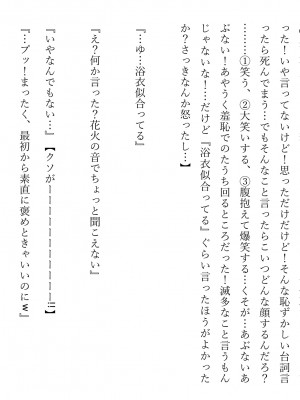 った！いや言ってないけど！思っただけだけど！そんな恥ずかしい台詞言
ったら死んでまう…でもそんなこと言ったらこいつどんな顔するんだろ？
………①笑う、②大笑いする、③腹抱えて爆笑する…くそが…あぶないあ
ぶない！あやうく羞恥でのたうち回るところだった！滅多なこと言うもん
じゃないな！…だけど『浴衣似合ってる』ぐらい言ったほうがよかった
か？さっきなんか怒ったし…】
『…ゆ…浴衣似合ってる』
『え？何か言った？花火の音でちょっと聞こえない』
『いやなんでもない…』【クソがーーーーーーーーーー!!】
『…ブッ！まったく、最初から素直に褒めときゃいいのにｗ』